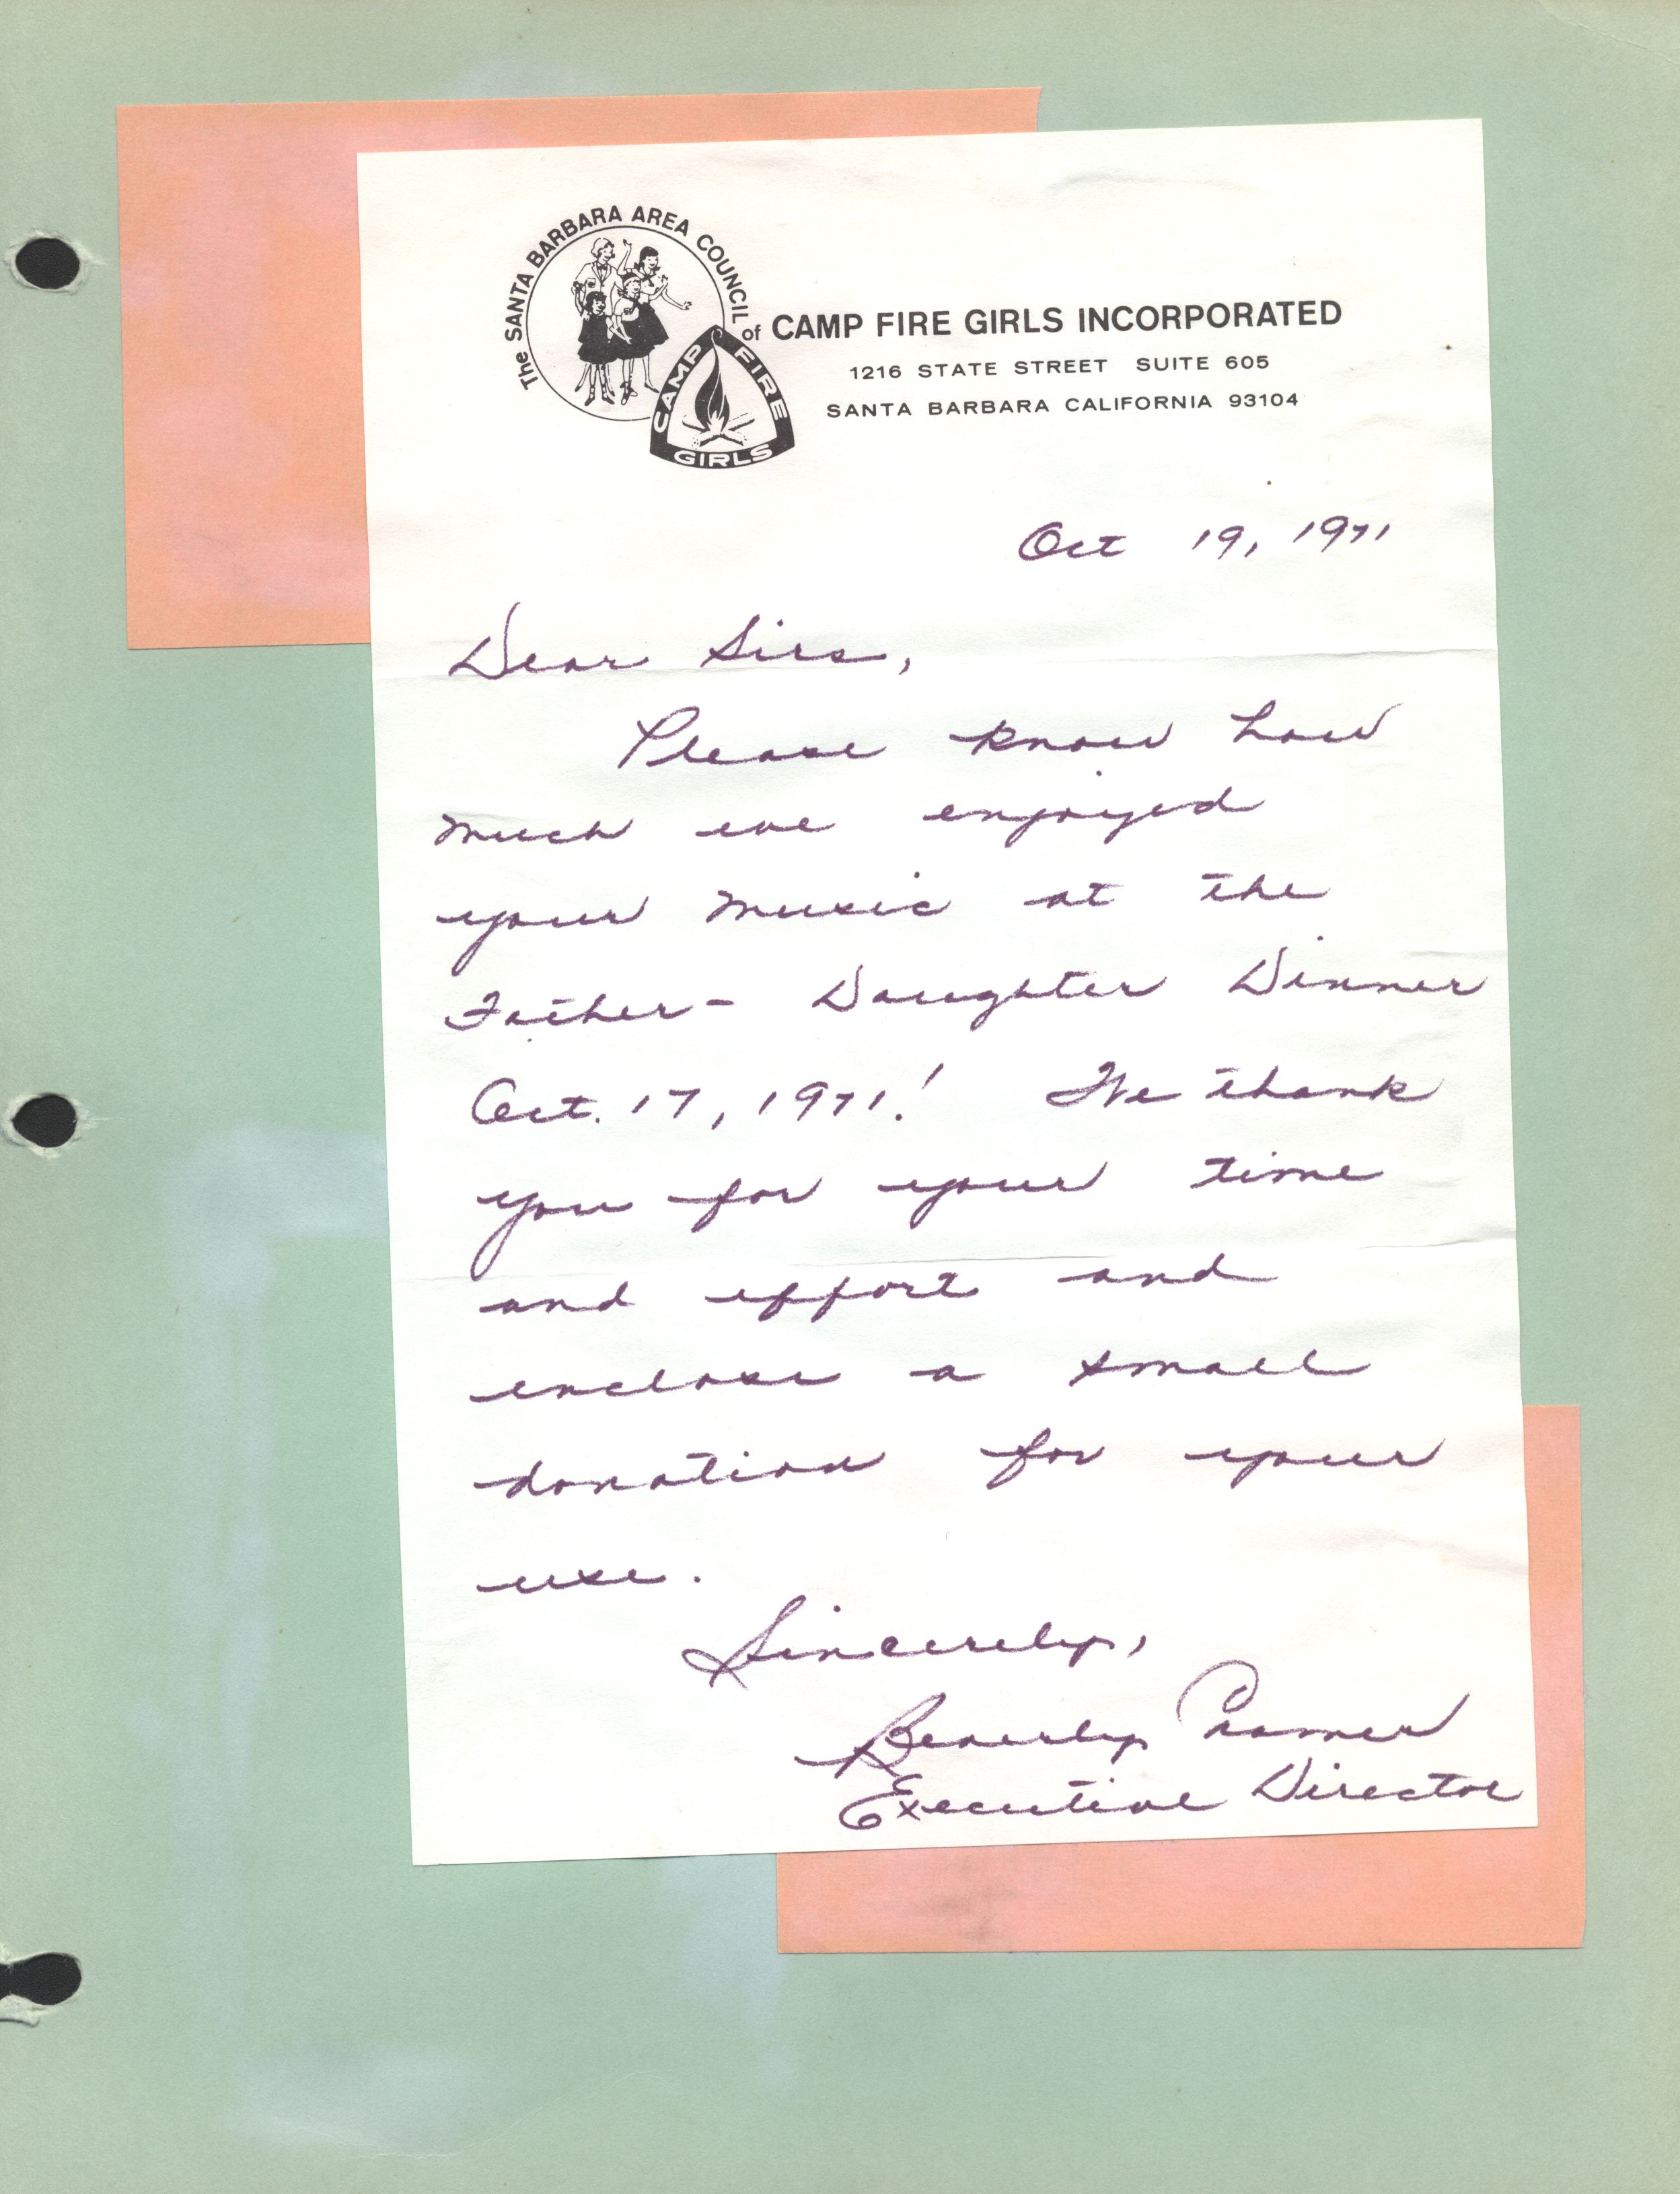 The SANTA BARBARA AREA COUNCIL of CAMP FIRE GIRLS INCORPORATED
CAMP FIRE GIRLS
1216 STATE STREET SUITE 605
SANTA BARBARA CALIFORNIA 93104
Oct 19, 1971
Dear Sirs,
Please know how
much we enjoyed
your music at the
Father- Daughter Dinner
Oct. 17, 1971! We thank
you for your time
and effort and
enclose a small
donation for your
use.
Sincerely,
Beverly Cramer
Executive Director